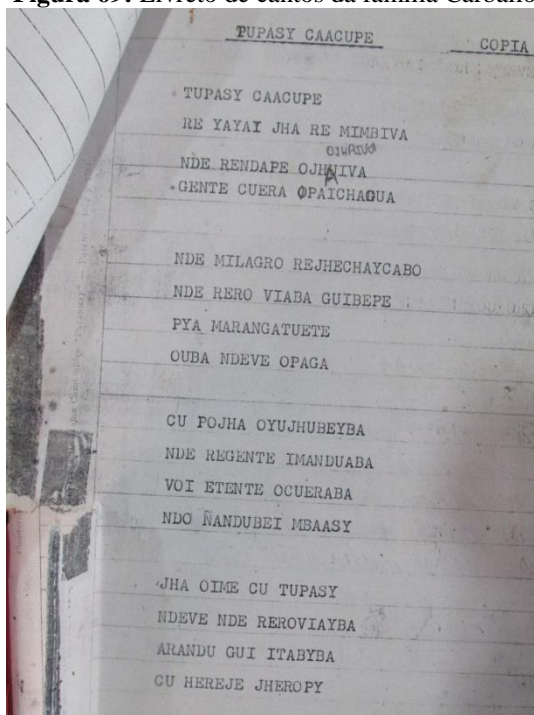 Figura 69: Livreto de cantos da família
TUPASY CAACUPE COPIA
TUPASY CAACUPE
RE YAYAI JHA RE MIMBIVA
NDE RENDAPE OJHAIVA
GENTE CUERA OPAICHAGUA
NDE MILAGRO REJHECHAYCABO
NDE RERO VIABA GUIBEPE
PYA MARANGATUETE
OUBA NDEVE OPAGA
CU POJHA OYUJHUBEYBA
NDE REGENTE IMANDUABA
VOI ETENTE OCUERABA
NDO ÑANDUBEI MBAASY
JHA OIME CU TUPASY
NDEVE NDE REROVIAYBA
ARANDU GUI ITABYBA
CU HEREJE JHEROPY